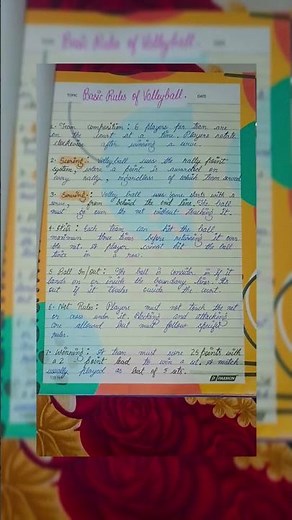 Basic Rules of Volleyball.
DATE
1- Team composition : 6 players per team are
on the court at a time. Players rotate
clockwise after winning a serve.
2- Scoring :- Volleyball uses the rally point
system, where a point is awarded on
every rally, regardless of which team served
3- Serving :- Volley ball use game starts with a
serve, from behind the end line. The ball
must go over the net without touching it.
4- Hits : Each team can hit the ball
maximum three times before returning it over
the net. A player cannot hit the ball
twice in a row.
5 Ball In/out : The ball is consider in if it
lands on or inside the boundary lines. It's
out if it lands outside the court.
6- Net Rules : Players must not touch the net
or cross under it. Blocking and attacking
are allowed but must follow specific
rules.
7- Winning : A team must score 25 points with
a 2 point lead to win a set. A match
usually played as best of 5 sets.